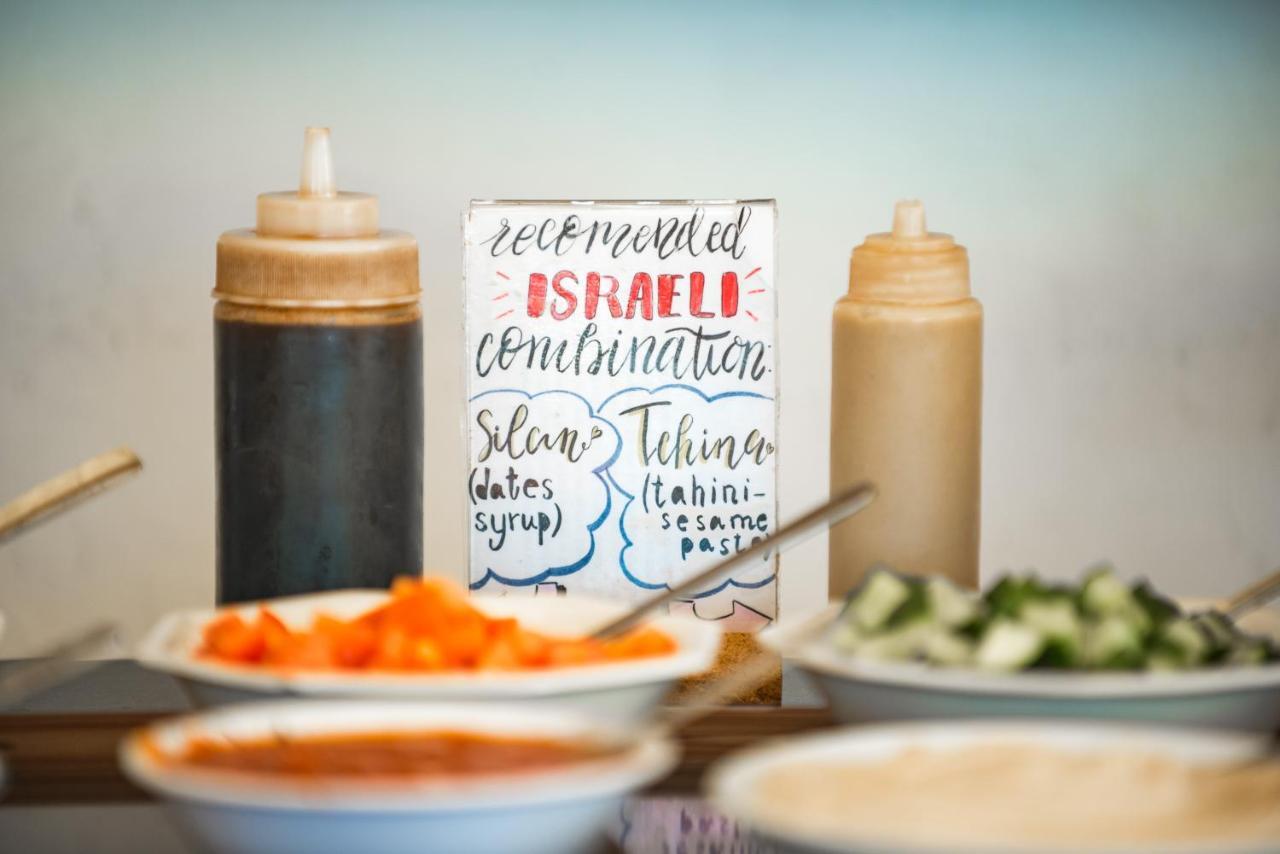 recomended
ISRAELI
combination:
Silan
(dates
syrup)
Tehina
(tahini-
sesame
paste)